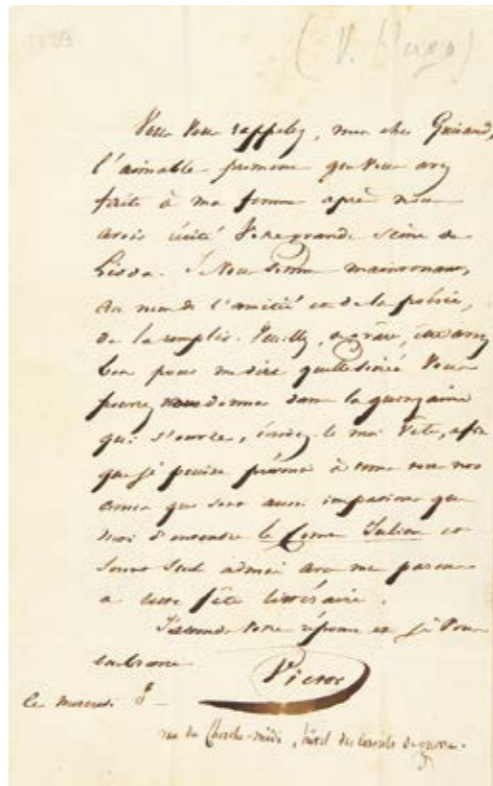 1823
(V. Hugo)
Vous vous rappelez, mon cher Guiraud,
l'aimable promesse que vous avez
faite à ma femme après nous
avoir récité votre grande scène de
. Nous vous sommons maintenant,
au nom de l'amitié et de la poésie,
de la remplir. Veuillez, de grâce, être assez
bon pour me dire quelle soirée vous
pourrez nous donner dans la quinzaine
qui s'ouvre, écrivez-le moi vite, afin
que je puisse prévenir à tems tous nos
amis qui sont aussi impatiens que
moi d'entendre le Comte Julien et
seront seuls admis avec mes parens
à cette fête littéraire.
J'attends votre réponse et je vous
embrasse
Victor
Ce mercredi 8
rue du Cherche-midi, hôtel des Conseils de guerre.